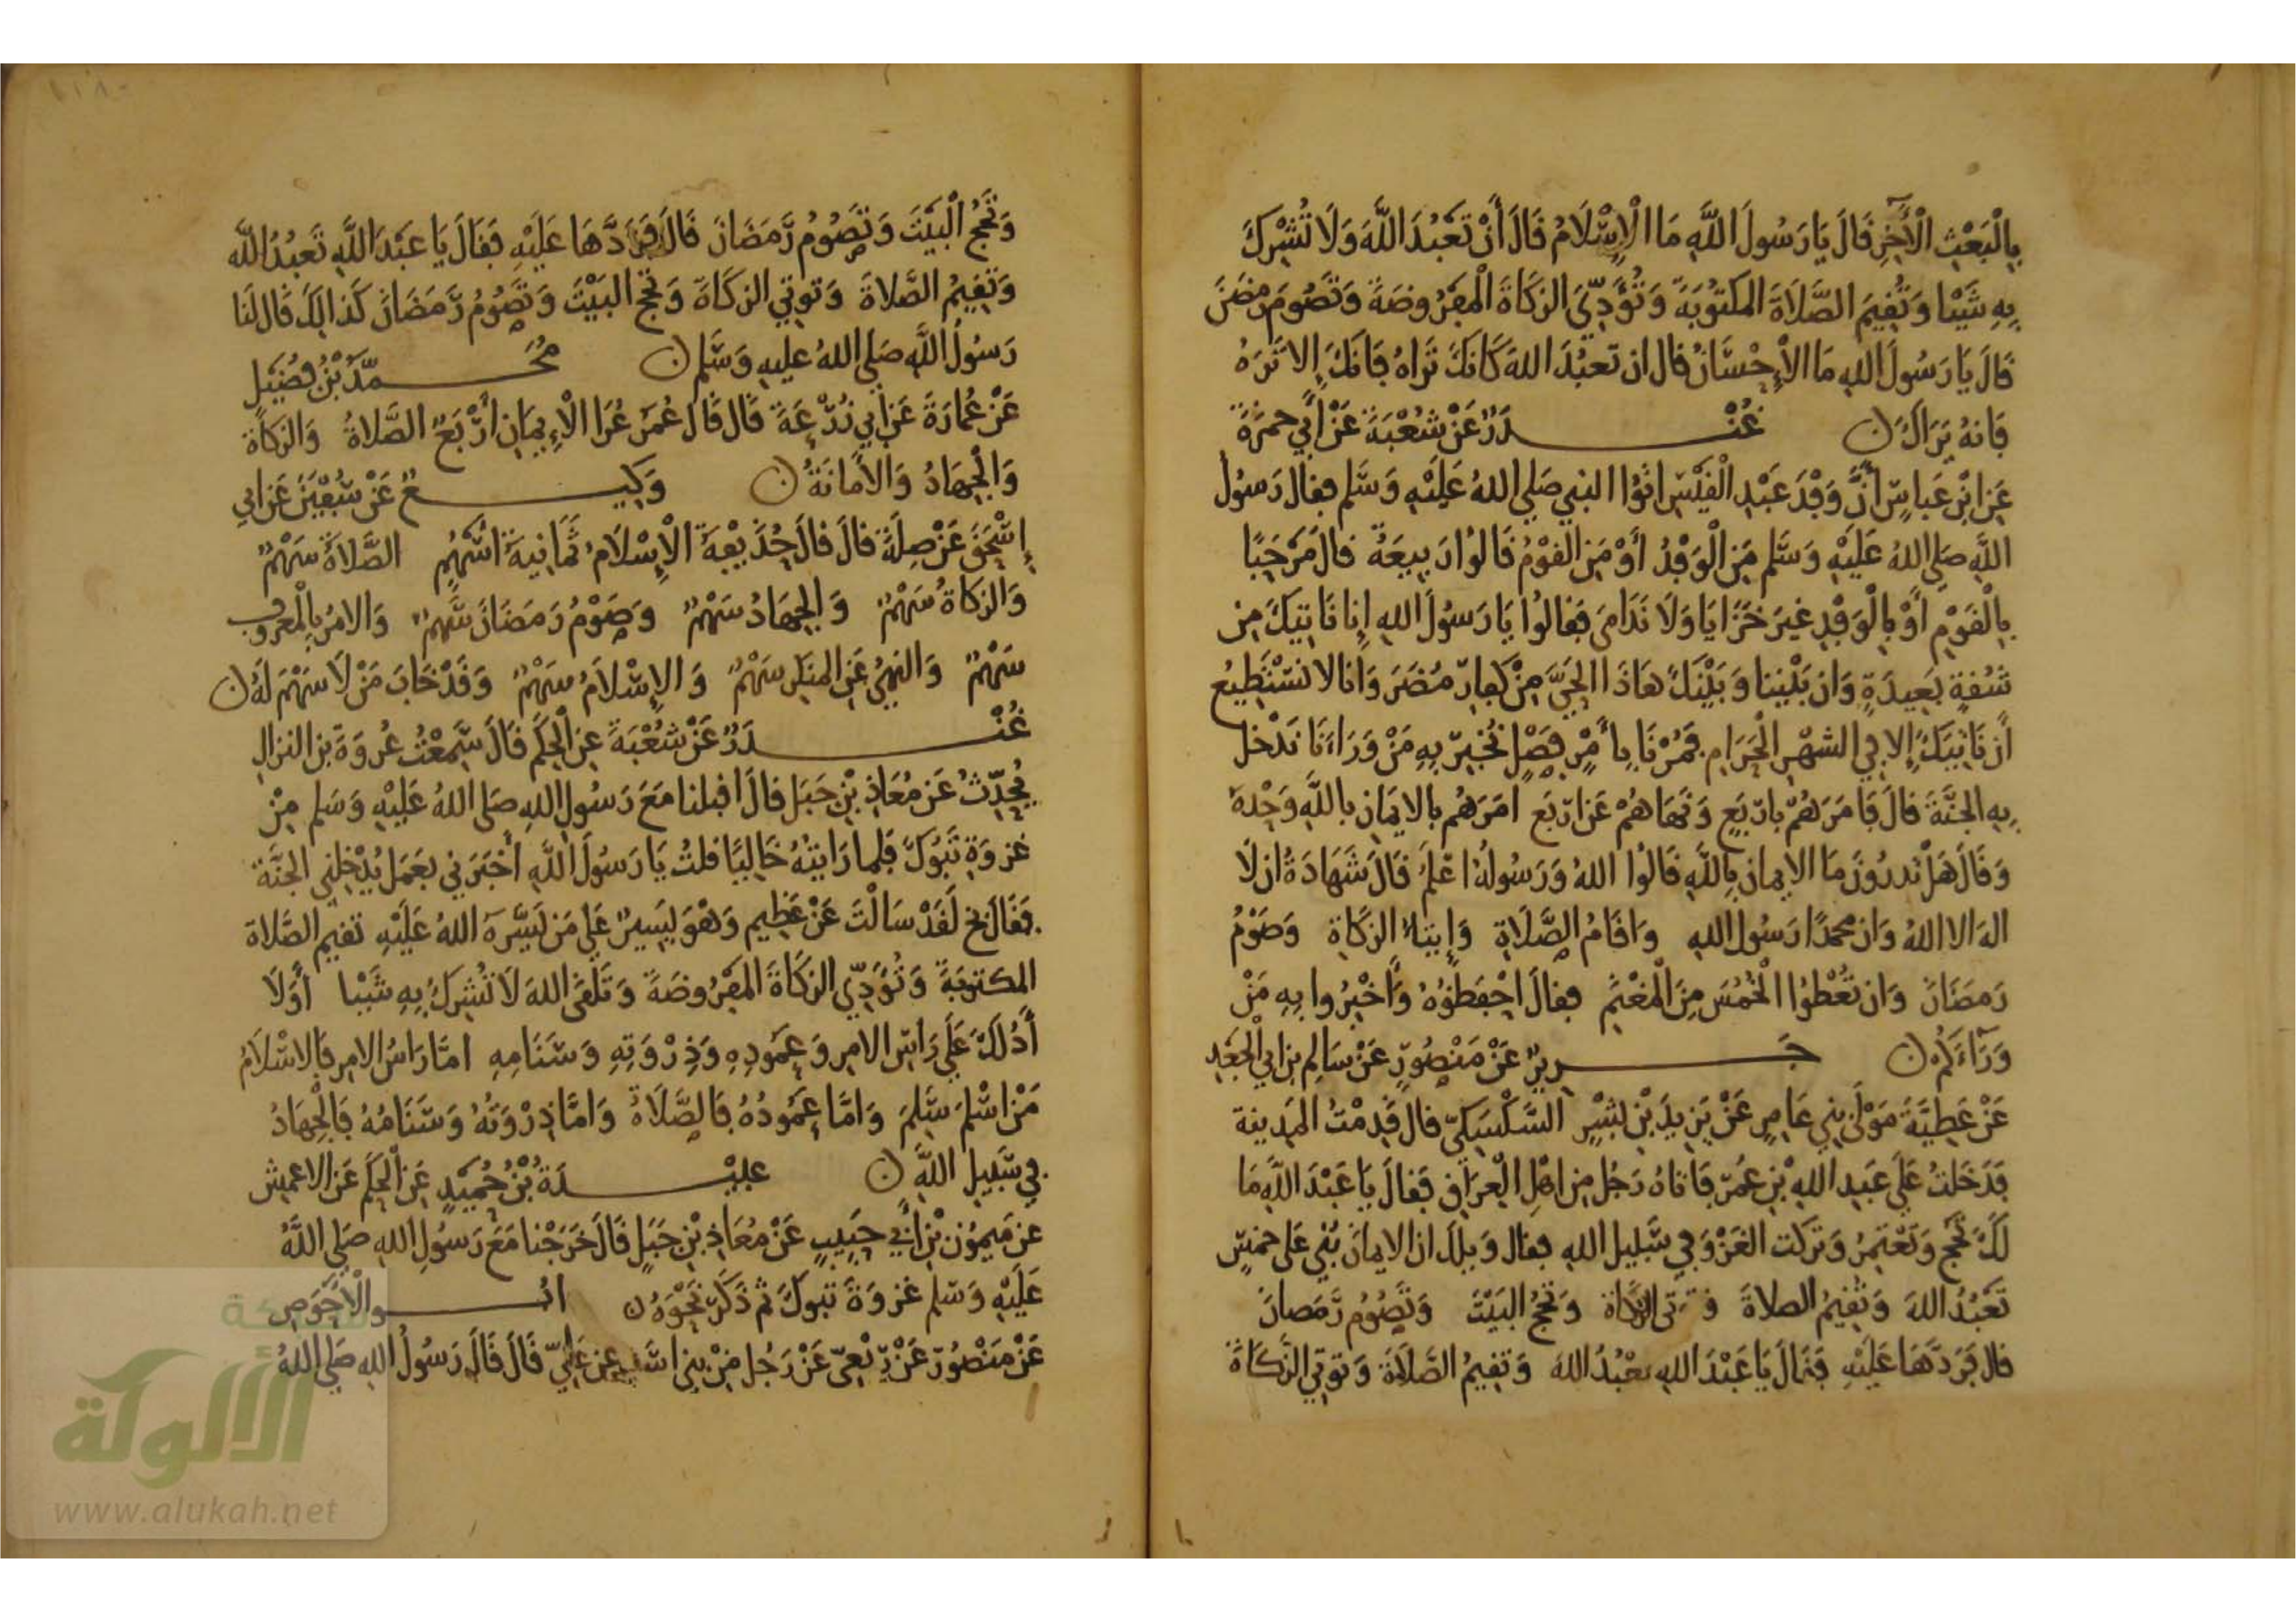 بِالْبَعْثِ الْآخِرِ قَالَ يَا رَسُولَ اللَّهِ مَا الْإِسْلَامُ قَالَ أَنْ تَعْبُدَ اللَّهَ وَلَا تُشْرِكَ
بِهِ شَيْئا وَتُقِيمَ الصَّلَاةَ المكتُوبَةَ وَتُؤَدِّيَ الزكَاةَ الْمَفْرُوضَةَ وَتَصُومَ رمضَنَ
قَالَ يَا رَسُولَ اللهِ مَا الْإِحْسَانُ قال ان تعبُدَ اللهَ كَانكَ تَرَاهُ فَانكَ إلا تَرَهُ
فَانهُ يَرَاكَ ن غُنْدَرٌ عَنْ شُعْبَةَ عَنْ أَبِي حمزَةَ
عَنِ ابْنِ عَباسٍ أَنَّ وَفْدَ عَبْدِ الْقَيْسِ اتَوُا النبي صَلى اللهُ عَلَيْهِ وَسَلم فقال رَسُولُ
اللَّهِ صَلى اللهُ عَلَيْهِ وَسَلم مَنِ الْوَفْدُ أَوْ مَنِ القوْمُ قَالُوا رَبِيعَةُ قالَ مَرْحَبًا
بِالْقَوْمِ أَوْ بِالْوَفْدِ غيرَ خَزَايَا وَلَا نَدَامَى فَقالُوا يَا رَسُولَ اللهِ إنا نَاتِيكَ مِن
شُقةٍ بَعِيدَةٍ وَان بَيْنِنا وَبَيْنَكَ هَاذَا الحَيَّ مِنْ كفارِ مُضَرَ وَانا لا نسْتَطِيعُ
أَن نَاتِيَكَ إلا فِي الشهْرِ الْحَرَامِ فَمُرْنَا بِأَمْرٍ فَصْلٍ نُخْبِرُ بِهِ مَنْ وَرَاءَنَا نَدْخل
بِهِ الجنَّةَ قالَ فَامَرَهُمْ بارْبَعٍ وَنَهَاهُمْ عَن ارْبَع امَرَهُم بالايمَانِ باللَّهِ وَحْدهُ
وَقَالَ هَلْ تدرُونَ مَا الايمان بِاللَّهِ قَالُوا اللهُ وَرَسُولُهُ اعْلَمُ قَالَ شَهَادَةُ ان لَا
اله الا اللهُ وَان محمدًا رَسُول اللهِ وَاقَامُ الصَّلَاةِ وَإِيتَاءُ الزكَاةِ وَصَوْمُ
رَمَضَانَ وَان تُعْطُوا الْخُمُسَ مِنَ الْمَغْنَمِ فقالَ احْفَظُوُهُ وَأَخْبِرُوا بِهِ مَنْ
وَرَآءَكُم ن جَرِيرٌ عَنْ مَنْصُورٍ عَنْ سَالِمِ بن ابِي الْجَعْدِ
عَنْ عَطِيَّةَ مَوْلَى بني عَامِرٍ عَنْ يَزِيدَ بْنِ بِشْرٍ السَّكْسَكِيّ قال قَدِمْتُ المَدِينة
فَدَخَلتُ عَلَى عَبدِ اللهِ بْنِ عُمَرَ فَاتَاهُ رَجُل مِن اهْلِ الْعِرَاقِ فَقالَ يَا عَبْدَ اللَّهِ مَا
لَكَ تَحُج وَتَعْتمِرُ وَتَرَكت الغزْوَ فِي سَبِيلِ اللهِ فقال وَيلك ان الايمَانَ بُنِي عَلى خمسٍ
تَعْبُدُ اللهَ وَتُقِيمُ الصلاةَ وتوتي الزكاة وَتَحُجُّ البَيْتَ وَتَصُوُمُ رَمَضانَ
قال فَرَدَّهَا عَلَيْهِ فَقالَ يَا عَبْدَ اللهِ تعْبُدُ اللهَ وَتقِيمُ الصَّلَاةَ وَتوتي الزَّكَاةَ
وَتَحُجُّ الْبَيْتَ وَتَصُوُمُ رَمَضَانَ قَالَ فَرَدَّهَا عَلَيْهِ فَقَالَ يَا عَبْدَ اللَّهِ تَعْبُدُ اللَّه
وَتُقِيمُ الصَّلاةَ وَتوتي الزكَاةَ وَتحُج البَيْتَ وَتَصُوُمُ رَمَضَانَ كَذالِكَ قَال لَنا
رَسُولُ اللَّهِ صَلى اللهُ عليهِ وَسَلم ن مُحَمَّدُ بْنُ فُضَيْلٍ
عَنْ عُمَارَةَ عَن ابي زُرْعَةَ قَال قَالَ عُمَرُ عُرَا الْإِيمَانِ أَرْبَعٌ الصَّلاةُ وَالزكَاةُ
وَالْجِهَادُ وَالأمَانَةُ ن وَكِيعٌ عَنْ سُفْيَنَ عَن ابي
إِسْحَقَ عَنْ صِلَةَ قالَ قالَ حُذَيْفةُ الْإِسْلَامُ ثَمَانِيَةُ اسْهُمٍ الصَّلَاةُ سَهْمٌ
وَالزكَاةُ سَهْمٌ وَالجِهَادُ سَهْمٌ وَصَوْمُ رَمَضَانَ سَهْمٌ وَالامْرُ بِالْمَعْرُوفِ
سَهْمٌ وَالنهْيُ عَنِ المنكَرِ سَهْمٌ وَالإِسْلَامُ سَهْمٌ وَقَدْ خَابَ مَنْ لَا سَهْمَ لَهُ ن
غُنْدَرٌ عَنْ شُعْبَةَ عن الْحَكَمِ قَالَ سَمِعْتُ عُروَةَ بن النزال
يُحَدِّثُ عَن مُعَاذِ بْنِ جَبَل قالَ اقبلنا مَعَ رَسُولِ اللهِ صَلى اللهُ عَلَيْهِ وَسَلم مِنْ
غزوَةِ تَبُوكَ فَلما رَايتهُ خَالِيًا قلتُ يَا رَسُولَ اللَّهِ أَخْبَرَني بعَمَل يُدْخِلني الجنَّة
فَقَالَ بخ لَقَدْ سَالْتَ عَنْ عَظِيم وَهْوَ يَسِيرٌ عَلى مَن يَسَّرَهُ اللهُ عَلَيْهِ تقيم الصَّلاة
المكتوبَةَ وَتُؤَدِّي الزكَاةَ الْمَفْرُوضَةَ وَتَلقَى اللهَ لَا تُشرِكُ بِهِ شَيْئا أَوَلَا
أَدُلكَ عَلَى رَاسِ الامرِ وَعَمُودِهِ وَذِرْوَتِهِ وَسَنَامِهِ امّا رَاسُ الامر فَالاسْلَامُ
مَنْ اسْلمَ سَلِمَ وَامَّا عَمُودُهُ فَالصَّلَاةُ وَامَّا ذِرْوَتُهُ وَسَنَامُهُ فَالْجِهَادُ
فِي سَبيلِ اللَّهِ ن عبيْدَةُ بْنُ حُمَيْدٍ عَنِ الْحَكَمِ عَن الاعمَش
عن مَيمُوْن بْن أَبِي حَبِيبٍ عَنْ مُعَاذِ بْنِ جَبَلٍ قَالَ خَرَجْنا مَعَ رَسُولِ اللهِ صَلى اللَّهُ
عَلَيْهِ وَسَلم غزوَةَ تبوكَ ثم ذَكَرَ نَحْوَهُ ن ابُوالْأَحْوَصِ
عَنْ مَنْصُورٍ عَنْ رِبْعِيّ عَنْ رَجُلٍ مِنْ بني اسَدٍ عن عَلِيّ قَالَ قَالَ رَسُولُ اللهِ صَلى اللهُ
الألوكة
www.alukah.net